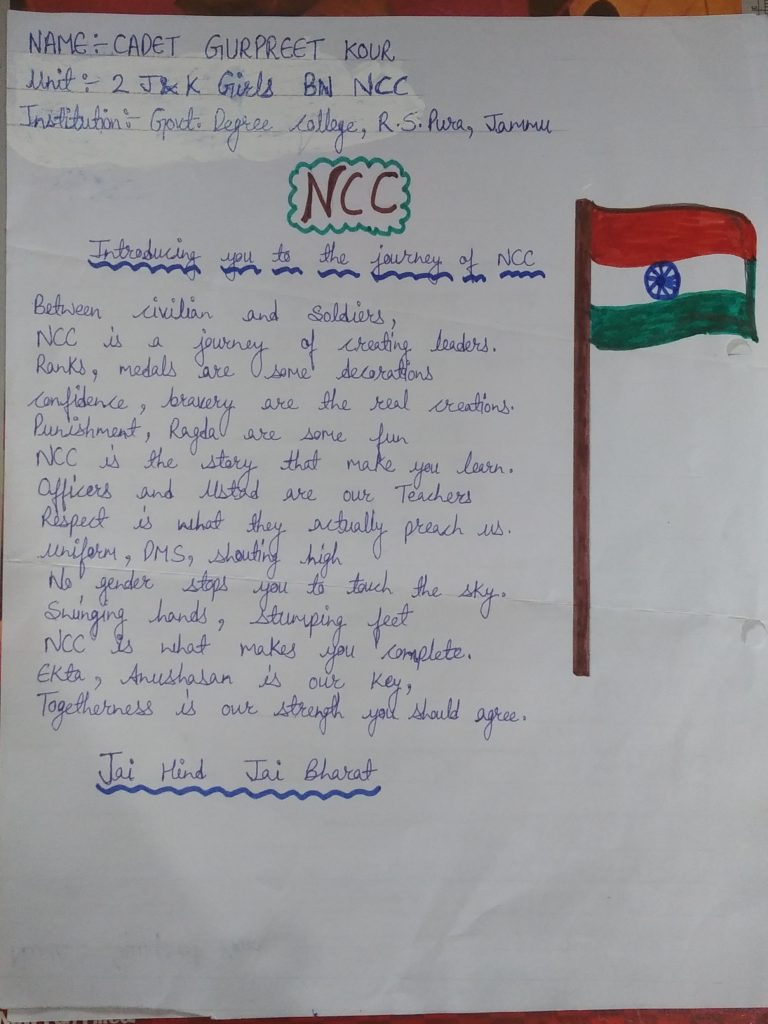 NAME:- CADET GURPREET KOUR
Unit:- 2 J&K Girls BN NCC
Institution:- Govt. Degree College, R.S. Pura, Jammu
NCC
Introducing you to the journey of NCC
Between civilian and Soldiers,
NCC is a journey of creating leaders.
Ranks, medals are some decorations
confidence, bravery are the real creations.
Punishment, Ragda are some fun
NCC is the story that make you learn.
Officers and Ustad are our Teachers
Respect is what they actually preach us.
Uniform, DMS, shouting high
No gender stops you to touch the sky.
Swinging hands, Stumping feet
NCC is what makes you complete.
Ekta, Anushasan is our Key,
Togetherness is our strength you should agree.
Jai Hind Jai Bharat